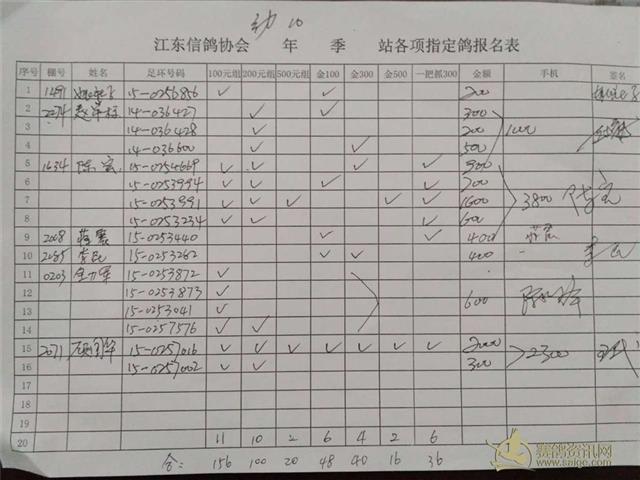 动 10
江东信鸽协会 年 季 站各项指定鸽报名表
序号 棚号 姓名 足环号码 100元组 200元组 500元组 金100 金300 金500 一把抓300 金额 手机 签名
1 15-0256856 ✓ ✓ 200
2 2274 14-036427 ✓ ✓ 300
3 14-036428 ✓ 200 1000
4 14-036600 ✓ ✓ 500
5 1634 陈宏 15-0254669 ✓ ✓ ✓ ✓ 900
6 15-0253994 ✓ ✓ ✓ ✓ 700
7 15-0253991 ✓ ✓ ✓ ✓ ✓ 1600 3800 陈宏
8 15-0253234 ✓ ✓ ✓ 600
9 2008 15-0253440 ✓ ✓ 400
10 2085 李民 15-0253262 ✓ ✓ 400 李民
11 0203 15-0253872 ✓
12 15-0253873 ✓
13 15-0253041 ✓ 600
14 15-0257576 ✓ ✓
15 2071 15-0257016 ✓ ✓ ✓ ✓ ✓ ✓ ✓ 2000 2300
16 15-0257002 ✓ ✓ 300
17
18
19
20 11 10 2 6 4 2 6
合: 156 100 20 48 40 16 36
赛鸽资讯网
www.saige.com